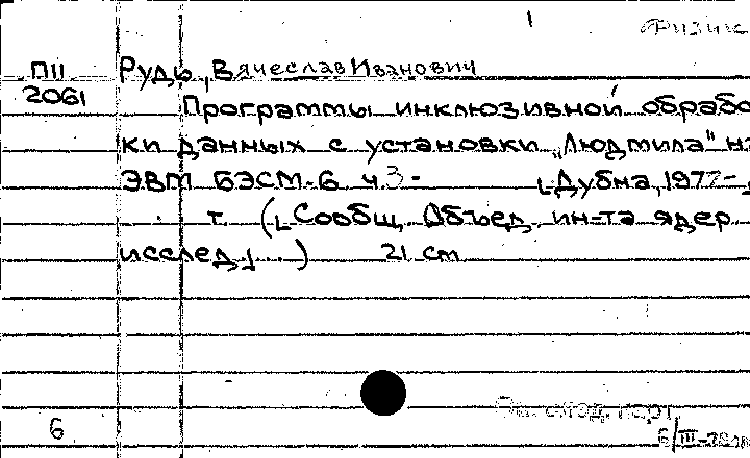 Физик
П11 Рудь, Вячеслав Иванович
2061 Программы инклюзивной обрабо
ки данных с установки „Людмила" на
ЭВМ БЭСМ-6 ч.3- [Дубна, 1977-
т. ([Сообщ. Объед. ин-та ядер.
исслед.] ...) 21 см
6
6/III-78